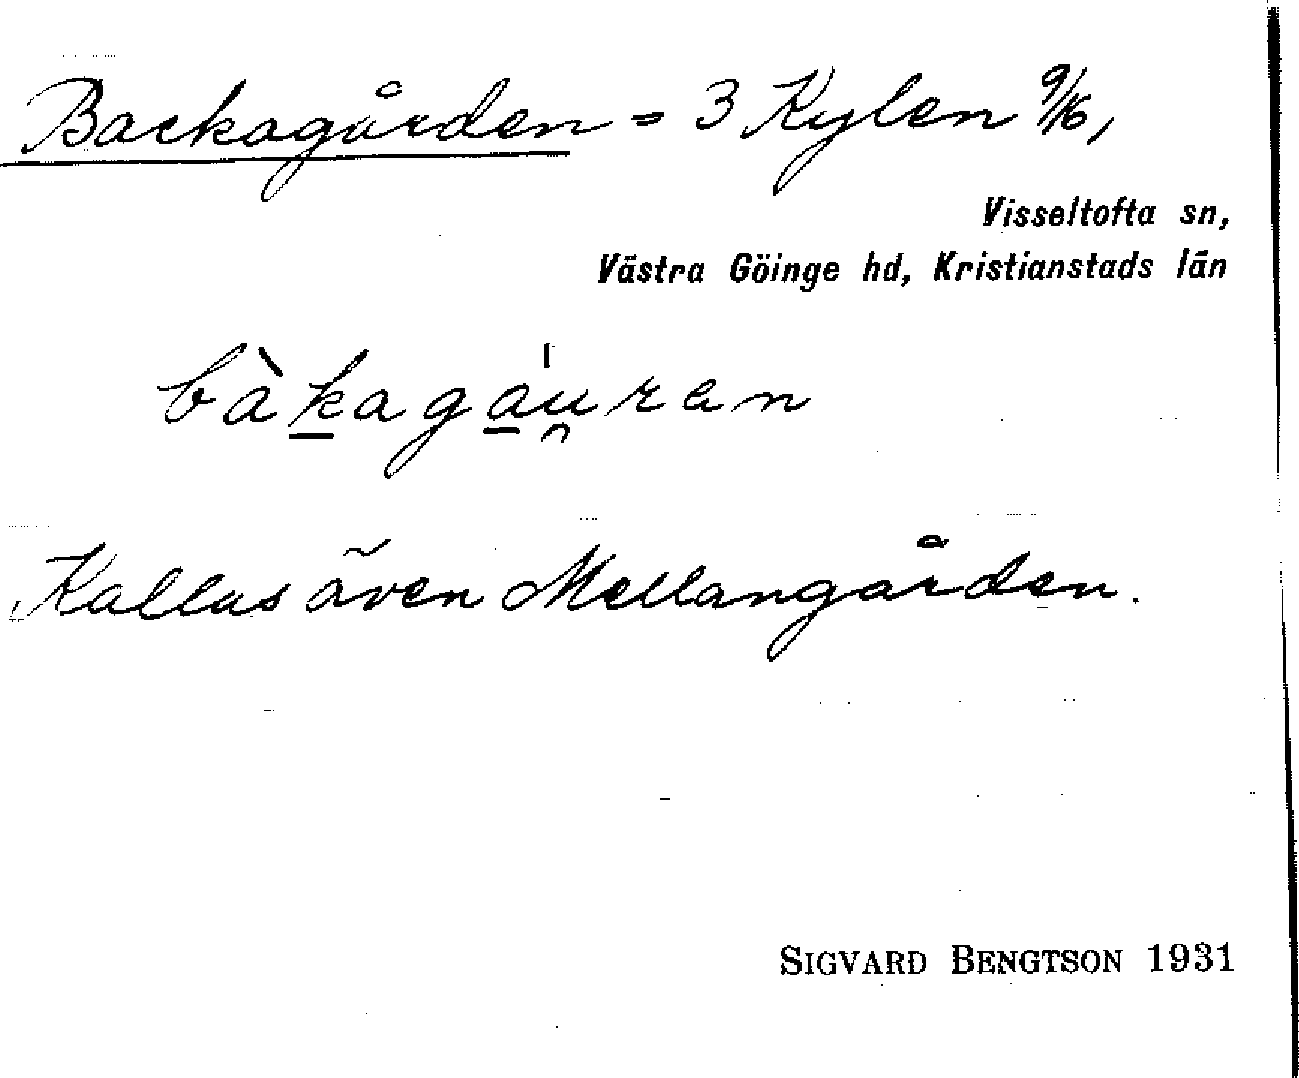 Backagården = 3 Kylen 9/16,
Visseltofta sn,
Västra Göinge hd, Kristianstads län
bàk̲aga̲u̯̍ran
Kallas även Mellangården.
SIGVARD BENGTSON 1931